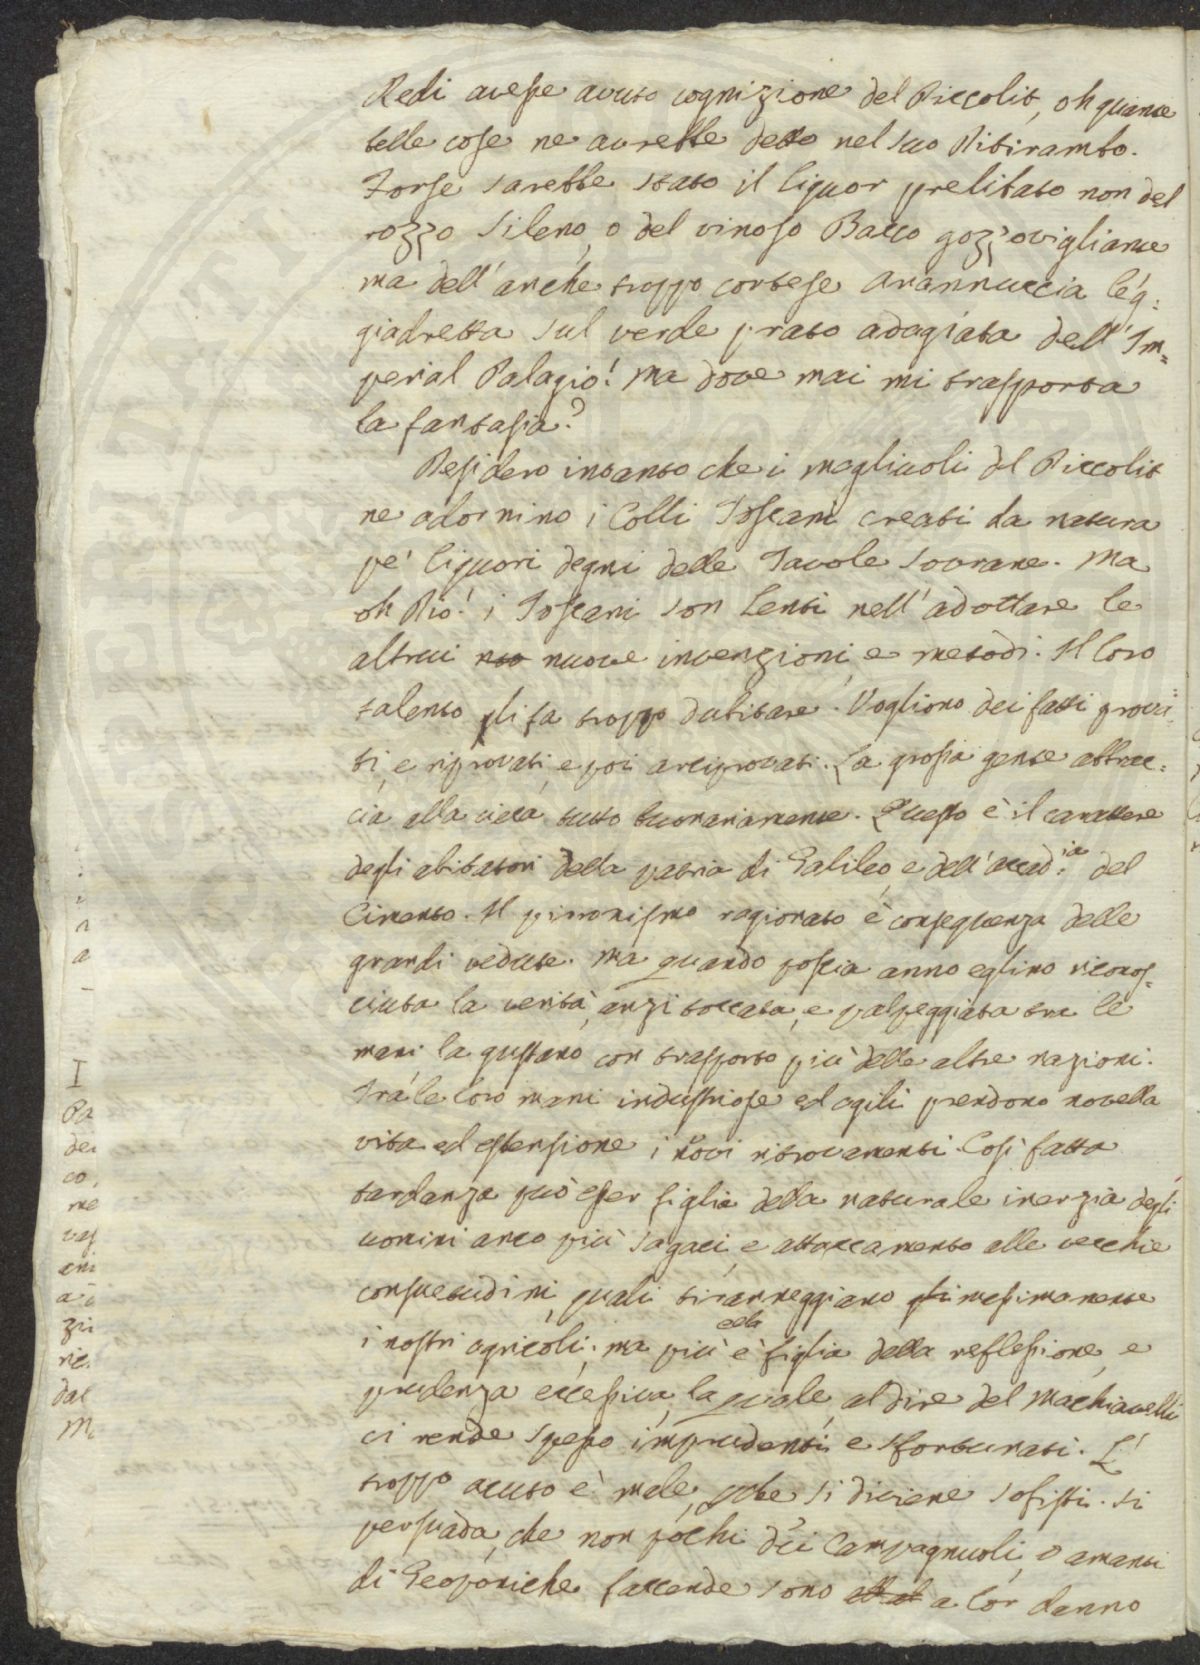 Redi avesse avuto cognizione del Piccolit, oh quante
belle cose ne avrebbe dette nel suo Ditirambo.
Forse sarebbe stato il liquor prelibato non del
rozzo Sileno, o del vinoso Bacco gozzovigliante
ma dell'anche troppo cortese Ariannuccia leg=
giadretta sul verde prato adagiata dell'Im=
perial Palagio! Ma dove mai mi trasporta
la fantasia?
Desidero intanto che i magliuoli del Piccolit
ne adornino i Colli Toscani creati da natura
pe' liquori degni delle Tavole Sovrane. Ma
oh Dio! i Toscani son lenti nell'adottare le
altrui nuove invenzioni, e metodi. Il loro
talento gli fa troppo dubitare. Vogliono dei fatti prova=
ti, e riprovati, e poi arciprovati. La grossa gente abbrac=
cia alla cieca tutto buonariamente. Questo è il carattere
degli abitatori della patria di Galileo, e dell'Accad:ia del
Cimento. Il pirronismo ragionato è conseguenza delle
grandi vedute. Ma quando poscia anno eglino riconos=
ciuta la verità, anzi toccata, e palpeggiata tra le
mani, la gustano con trasporto più delle altre nazioni.
Tra le loro mani industriose ed agili prendono novella
vita ed estensione i nuovi ritrovamenti. Così fatta
tardanza può esser figlia della naturale inerzia degli
uomini anco più sagaci, e attaccamento alle vecchie
consuetudini, quali tiranneggiano massimamente
i nostri agricoli; ma più ella è figlia della reflessione, e
prudenza eccessiva, la quale, al dire del Machiavelli
ci rende spesso imprudenti e sfortunati. L'
troppo acuto è male, che si diviene sofisti. Si
persuada, che non pochi dei Campagnuoli, o amanti
di Geoponiche faccende sono a lor danno
I
Pa
der
co,
me
vas
ani
zii
ric.
dal